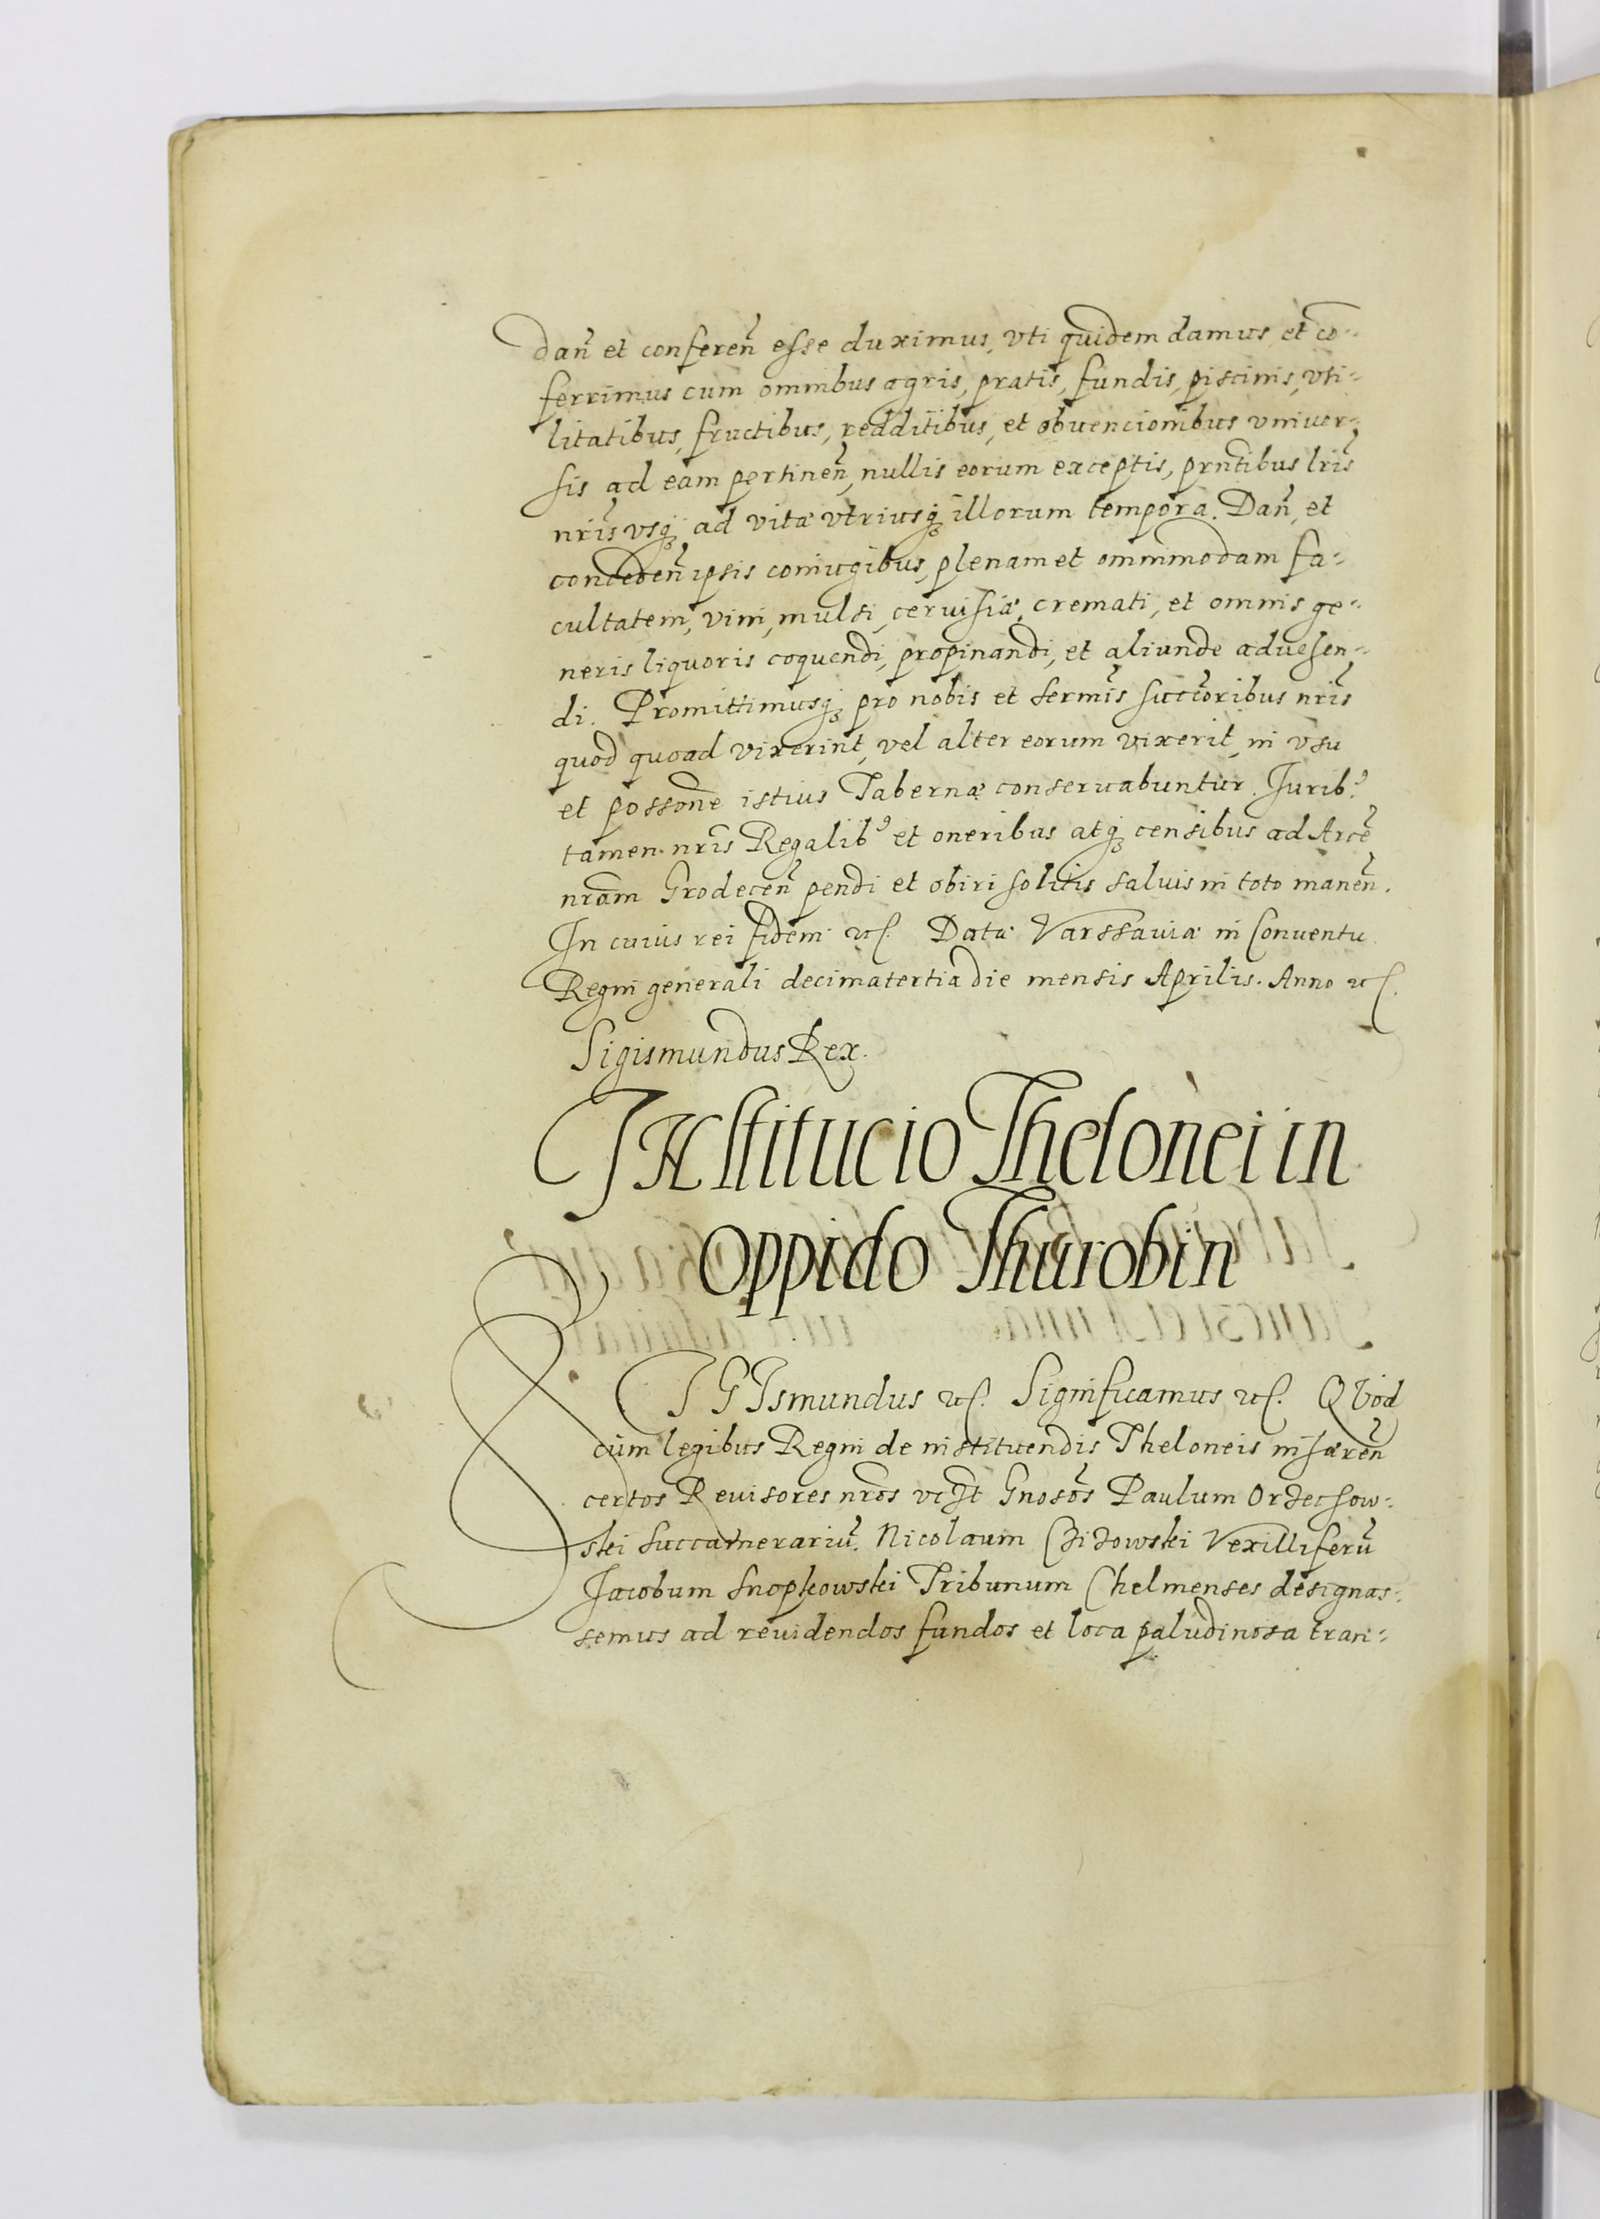 dan̄ et conferen̄ esse duximus, vti quidem damus et co-
ferrimus cum omnibus agris, pratis, fundis, piscinis, vti-
litatibus, fructibus, redditibus, et obuencionibus vniuer-
sis ad eam pertinen̄, nullis eorum exceptis, prntibus lris
nris vsq ad vitæ vtriusq illorum tempora. Dan̄, et
conceden̄ ipsis coniugibus, plenam et omnimodam fa-
cultatem, vini, mulsi, ceruisiæ, cremati, et omnis ge-
neris liquoris coquendi, propinandi, et aliunde aduehen-
di. Promittimusq pro nobis et sermis succoribus nris
quod quoad vixerint, vel alter eorum vixerit, in vsu
et possone istius Tabernæ conseruabuntur. Jurib9
tamen nris Regalib9 et oneribus atq censibus ad Arcē
nram Grodecen̄ pendi et obiri solitis saluis in toto manen̄.
In cuius rei fidem etc. Datæ Varssauiæ in Conuentu
Regni generali decimatertia die mensis Aprilis. Anno etc.
Sigismundus Rex.
INstitucio Thelonei in
Oppido Thurobin
SIGIsmundus etc. Significamus etc. QVod
cum legibus Regni de instituendis Theloneis inhæren̄
certos Reuisores nros vc&t Gnosos Paulum Orzechow-
ski Succamerariū. Nicolaum Czizowski Vexilliferū
Jacobum Snopkowski Tribunum Chelmenses designas-
semus ad reuidendos fundos et loca paludinosa tran-